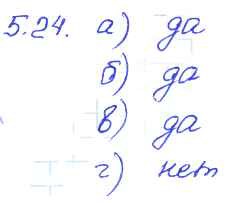 5.24. а) да
б) да
в) да
г) нет